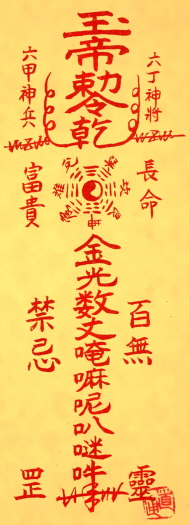 玉帝勅令乾
六丁神將
六甲神兵
長命
富貴
金光数丈唵嘛呢叭吽
百無
禁忌
靈
罡